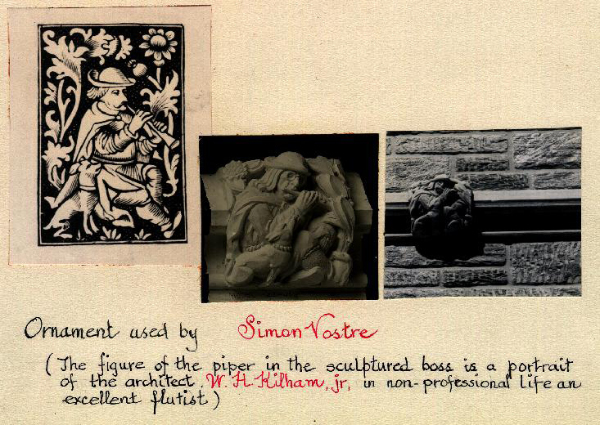 Ornament used by Simon Vostre
(The figure of the piper in the sculptured boss is a portrait
of the architect, W. H. Kilham, jr, in non-professional life an
excellent flutist)